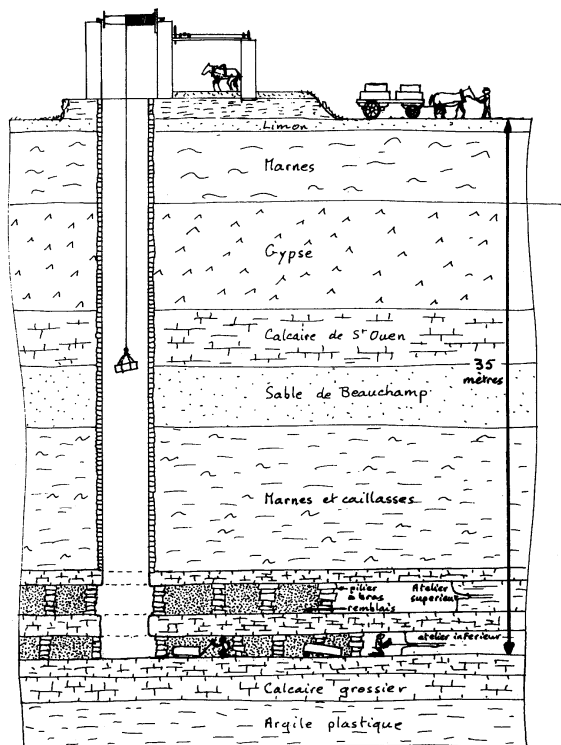 Limon
Marnes
Gypse
Calcaire de St Ouen
35
mètres
Sable de Beauchamp
Marnes et caillasses
pilier
à bras
remblais
Atelier
supérieur
atelier inférieur
Calcaire grossier
Argile plastique